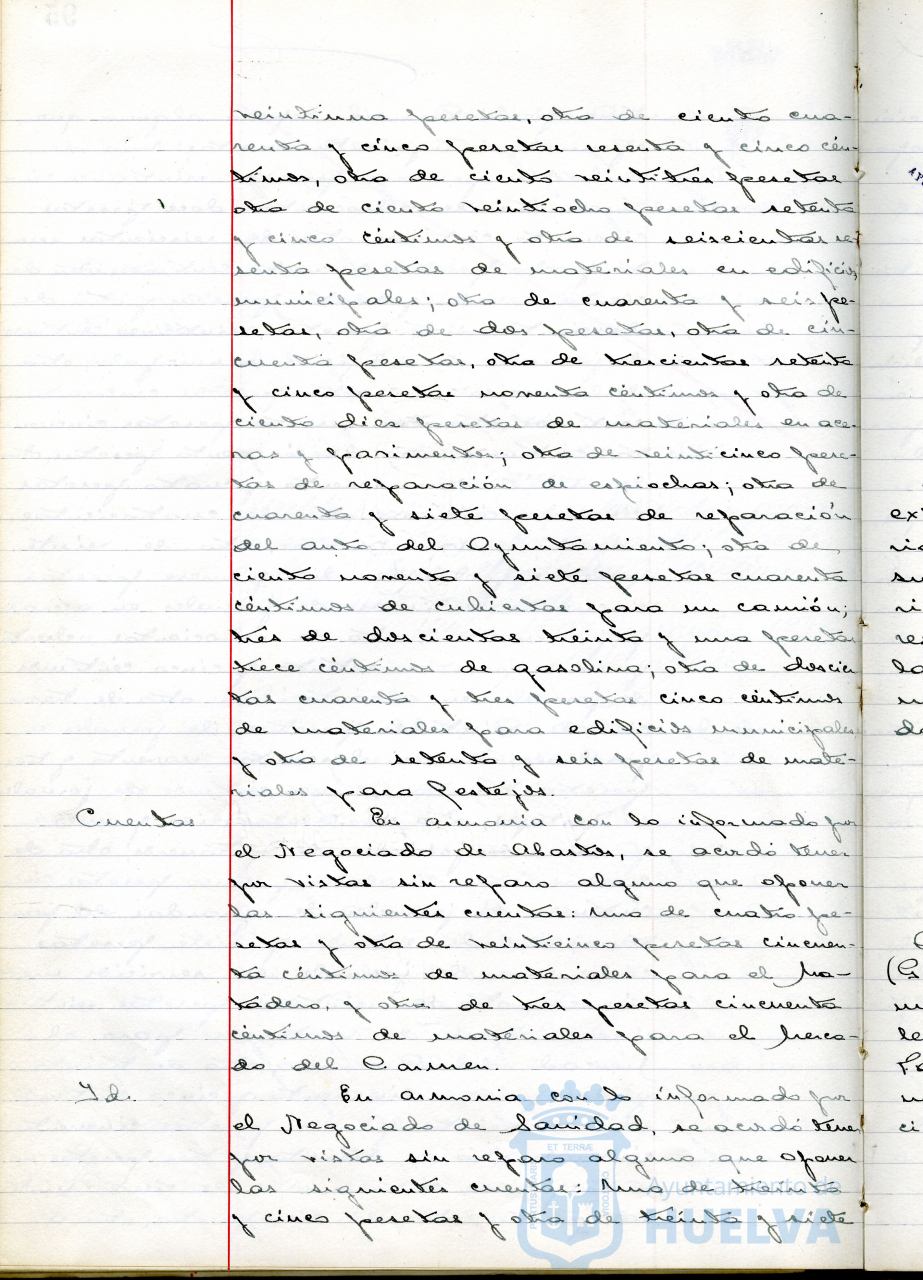 veintiuna pesetas, otra de ciento cua-
renta y cinco pesetas sesenta y cinco cén-
timos, otra de ciento veintitres pesetas
otra de ciento veintiocho pesetas setenta
y cinco céntimos y otra de seiscientas se-
senta pesetas de materiales en edificios
municipales; otra de cuarenta y seis pe-
setas, otra de dos pesetas, otra de cin-
cuenta pesetas, otra de trescientas setenta
y cinco pesetas noventa céntimos y otra de
ciento diez pesetas de materiales en ace-
ras y pavimentos; otra de veinticinco pese-
tas de reparación de espiochas; otra de
cuarenta y siete pesetas de reparación
del auto del Ayuntamiento; otra de
ciento noventa y siete pesetas cuarenta
céntimos de cubiertas para un camión;
tres de doscientas treinta y una pesetas
trece céntimos de gasolina; otra de doscien
tas cuarenta y tres pesetas cinco céntimos
de materiales para edificios municipales
y otra de setenta y seis pesetas de mate-
riales para festejos.
Cuentas En armonia con lo informado por
el Negociado de Abastos, se acordó tener
por vistas sin reparo alguno que oponer
las siguientes cuentas: Una de cuatro pe-
setas y otra de veinticinco pesetas cincuen-
ta céntimos de materiales para el Ma-
tadero, y otra de tres pesetas cincuenta
céntimos de materiales para el Merca-
do del Carmen.
Id. En armonia con lo informado por
el Negociado de Sanidad, se acordó tener
por vistas sin reparo alguno que oponer
las siguientes cuentas: Una de treinta
y cinco pesetas y otra de treinta y siete
ET TERRÆ
Ayuntamiento de
HUELVA